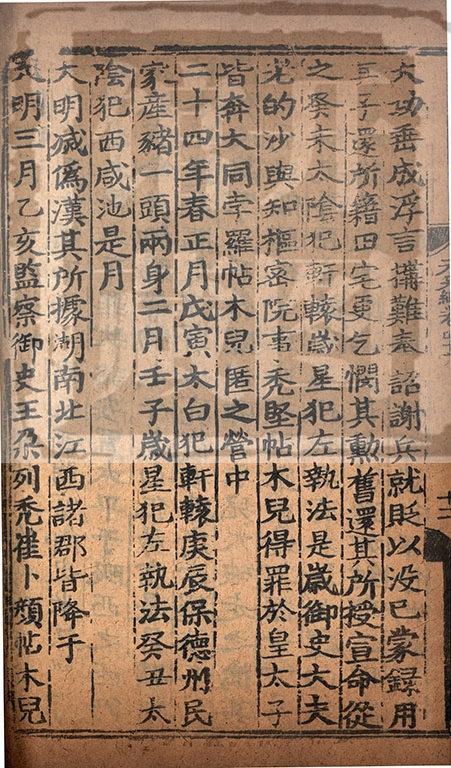 大功垂成浮言搆難奉詔謝兵就貶以没已蒙錄用
其子還所籍田宅更乞憫其勲舊還其所授宣命從
之癸未太陰犯軒轅歲星犯左執法是歲御史大夫
老的沙與知樞密院事禿堅帖木兒得罪於皇太子
皆奔大同孛羅帖木兒匿之營中
二十四年春正月戊寅太白犯軒轅庚辰保德州民
家産豬一頭兩身二月壬子歲星犯左執法癸丑太
陰犯西咸池是月
大明滅偽漢其所據湖南北江西諸郡皆降于
大明三月乙亥監察御史王朶列禿崔卜顏帖木兒
十二